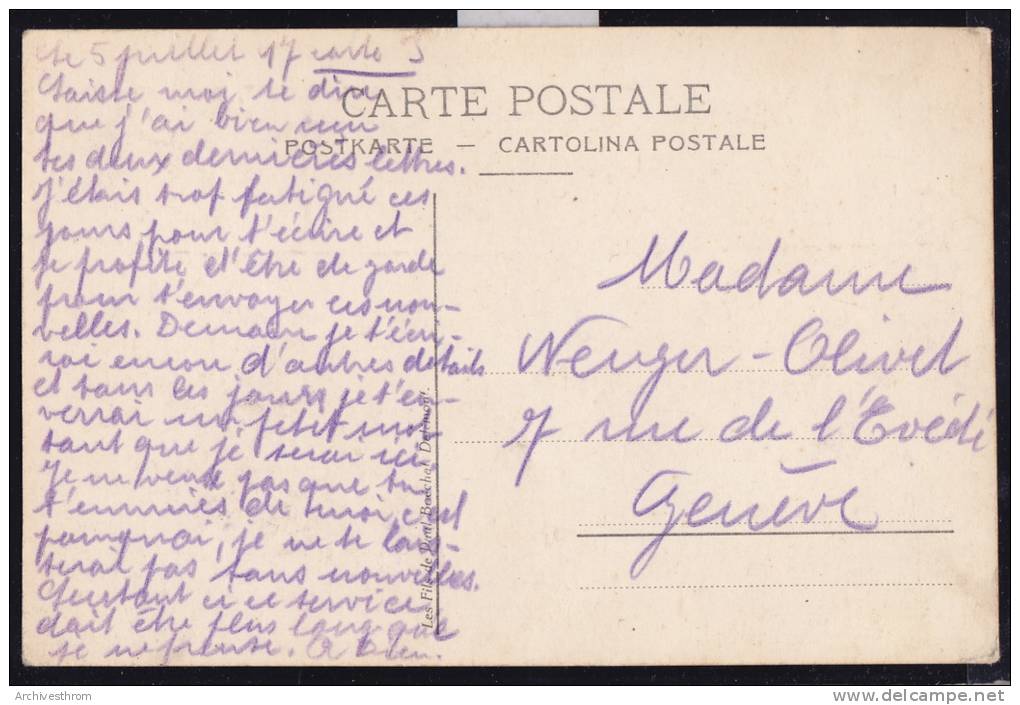 Le 5 juillet 17 carte 3
CARTE POSTALE
POSTKARTE — CARTOLINA POSTALE
Laisse moi te dire
que j'ai bien reçu
tes deux dernières lettres.
J'étais trop fatigué ces
jours pour t'écrire et
je profite d'être de garde
pour t'envoyer ces nou-
velles. Demain je t'écri-
rai encore d'autres détails
et tous les jours je t'en-
verrai un petit mot
tant que je serai ici.
Je ne veux pas que tu
t'ennuies de moi, c'est
pourquoi, je ne te lais-
serai pas sans nouvelles.
ici ce service
doit être plus long que
je ne pense. A bien.
Les Fils de Paul Bacchat Delémont
Madame
Wenger-Olivet
7 rue de l'Evêché
Genève
Archivesthrom
delcampe.net